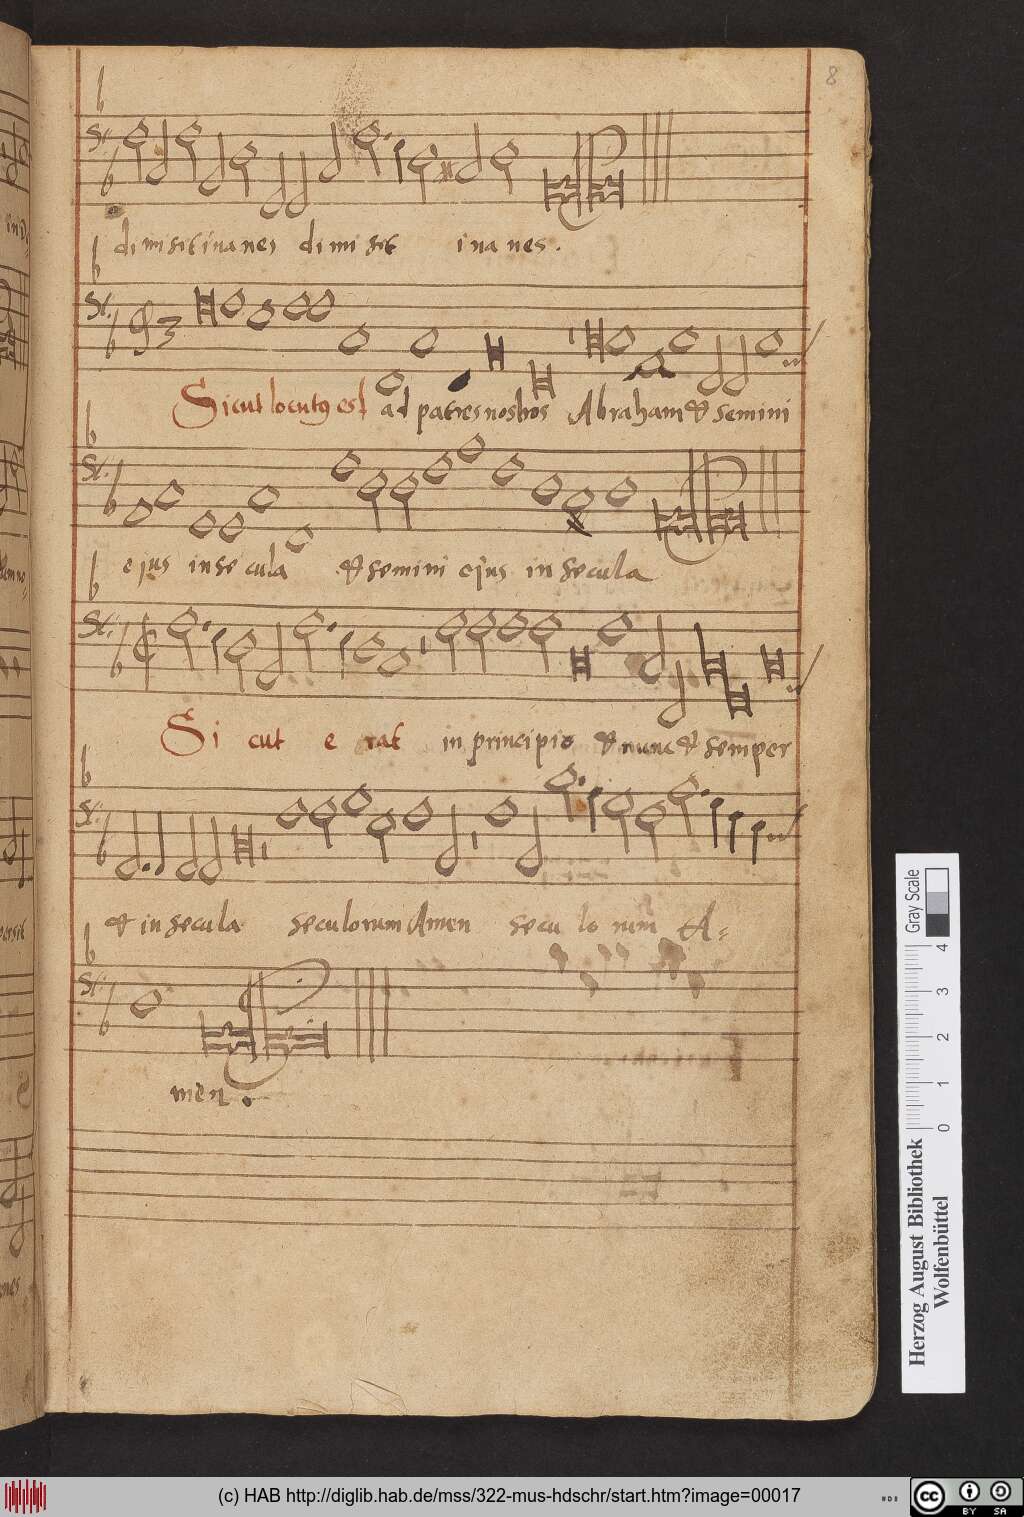 8
dimisit inanes dimisit inanes.
Sicut locutus est ad patres nostros Abraham & semini
ejus in secula & semini ejus in secula
Si cut e rat in principio & nunc & semper
& in secula seculorum Amen secu lo rum A-
men.
Gray Scale
0 1 2 3 4
Herzog August Bibliothek
Wolfenbüttel
(c) HAB http://diglib.hab.de/mss/322-mus-hdschr/start.htm?image=00017
cc BY SA